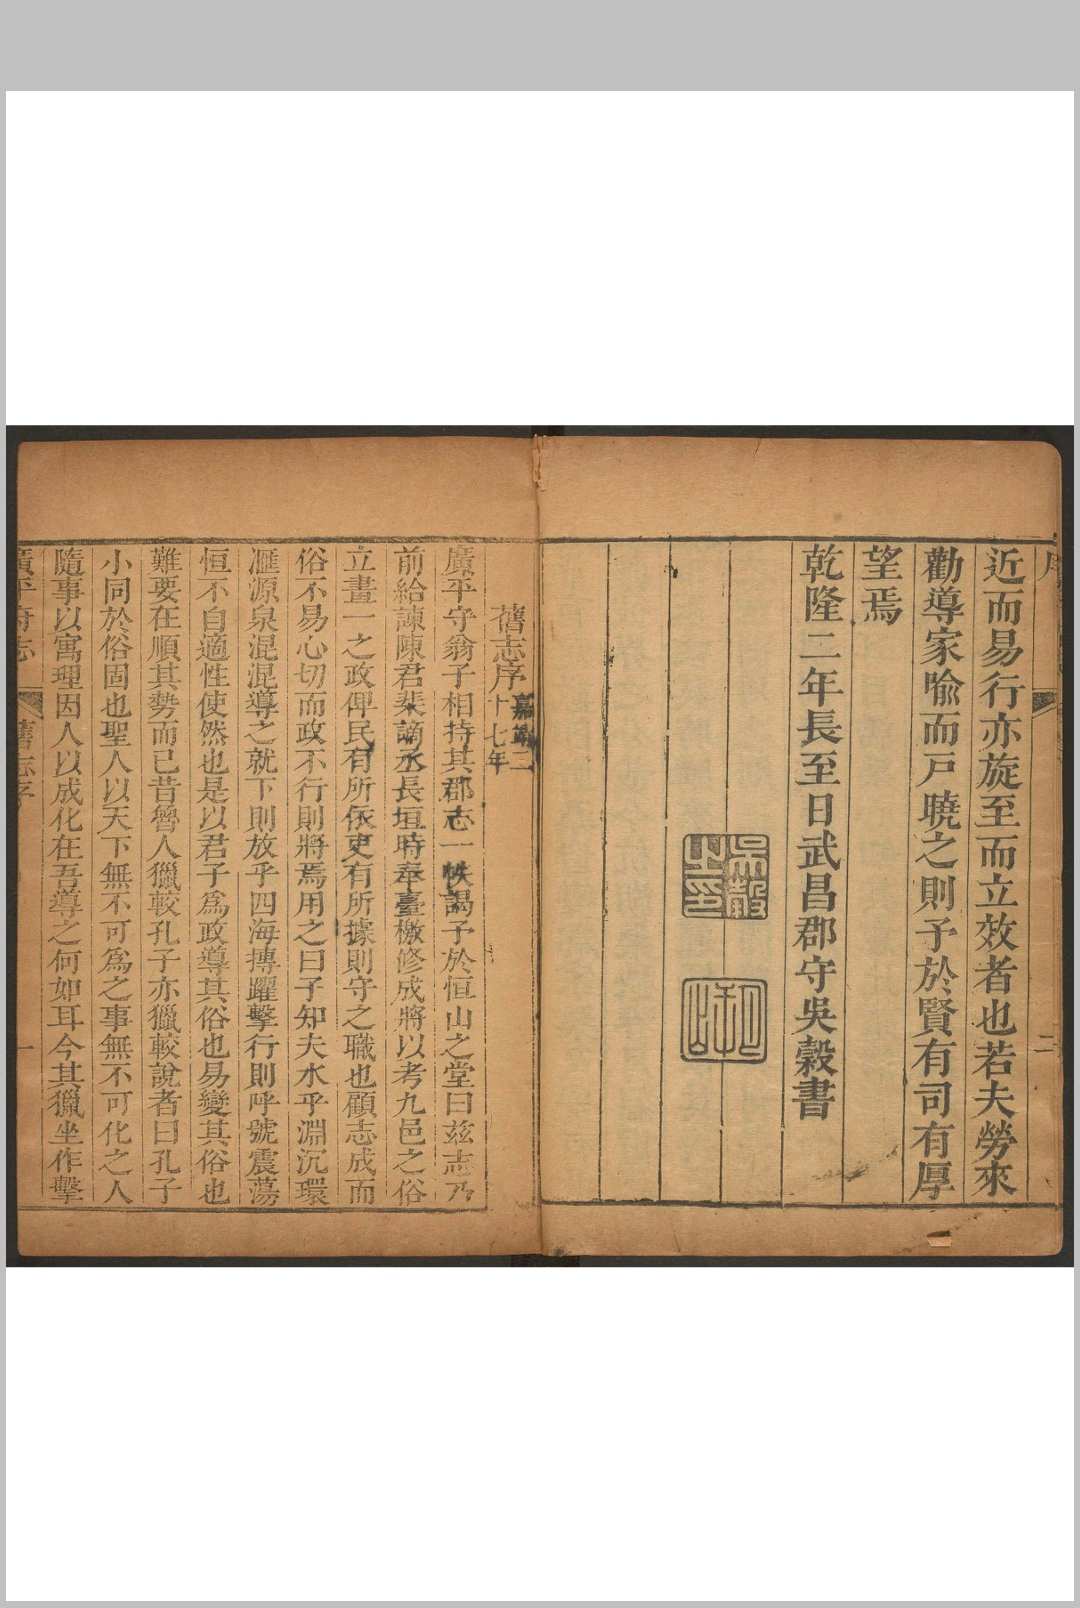 序
二
近而易行亦旋至而立效者也若夫勞來
勸導家喻而戸曉之則予於賢有司有厚
望焉
乾隆二年長至日武昌郡守吳穀書
吳穀之印
舊志序嘉靖二十七年
廣平守翁子相持其郡志一帙謁予於恒山之堂曰茲志乃
前給諫陳君棐謫丞長垣時奉臺檄修成將以考九邑之俗
立畫一之政俾民有所依吏有所據則守之職也顧志成而
俗不易心切而政不行則將焉用之曰子知夫水乎淵沉環
滙源泉混混導之就下則放乎四海摶躍擊行則呼號震蕩
恒不自適性使然也是以君子爲政導其俗也易變其俗也
難要在順其勢而已昔魯人獵較孔子亦獵較說者曰孔子
小同於俗固也聖人以天下無不可爲之事無不可化之人
隨事以寓理因人以成化在吾導之何如耳今其獵坐作擊
廣平府志
舊志序
一